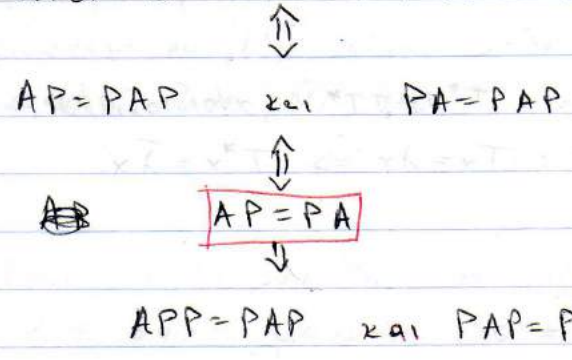 ⇕
AP = PAP και PA = PAP
⇕
AP = PA
⇓
APP = PAP και PAP = P